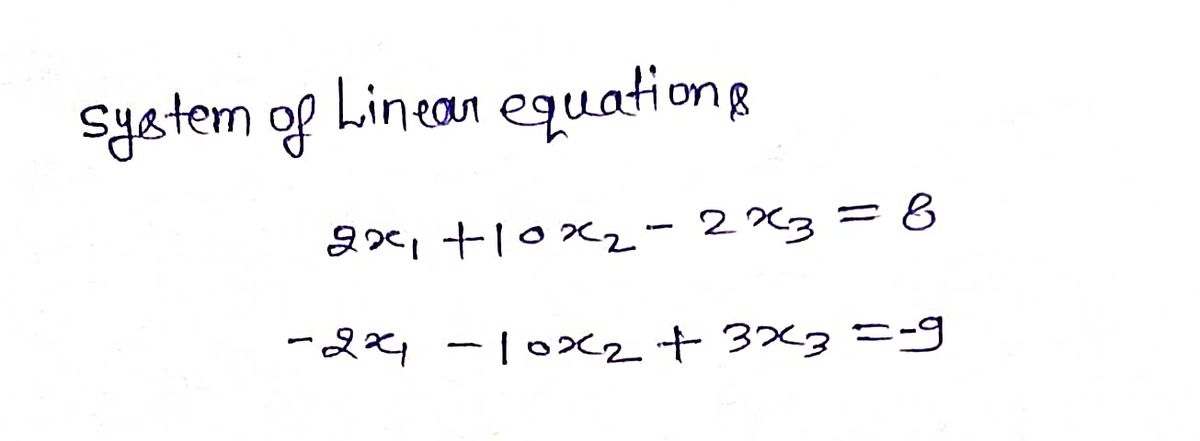 System of Linear equations
2x₁ + 10x₂ - 2x₃ = 8
-2x₁ - 10x₂ + 3x₃ = -9